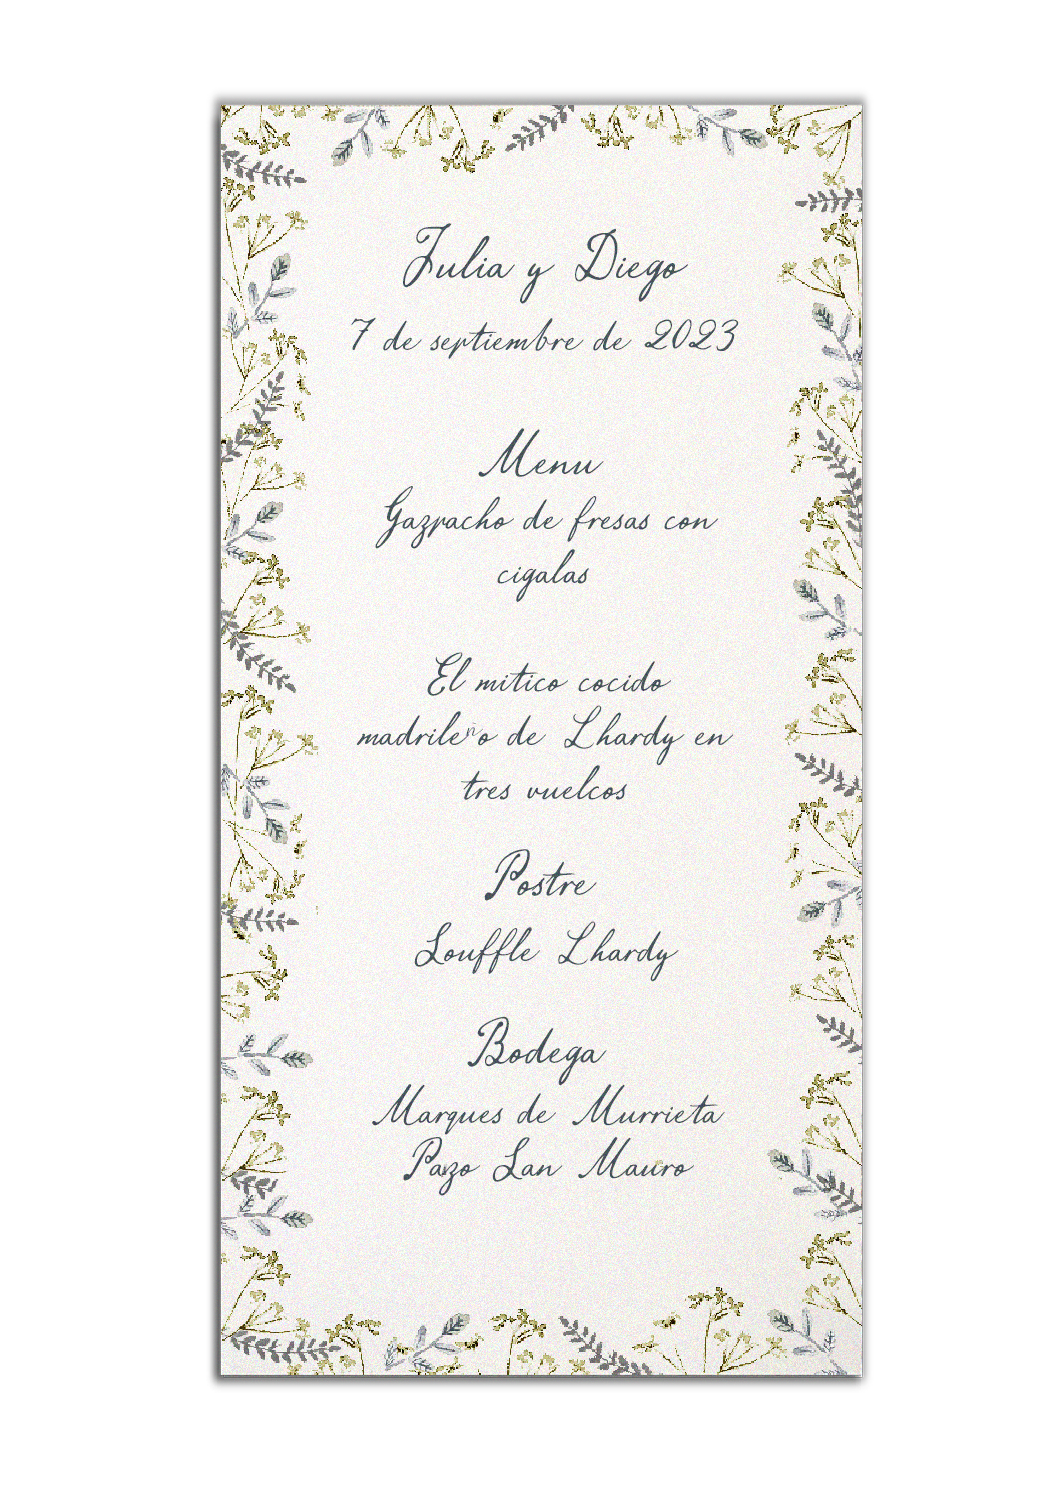 Julia y Diego
7 de septiembre de 2023
Menu
Gazpacho de fresas con
cigalas
El mitico cocido
madrileño de Lhardy en
tres vuelcos
Postre
Souffle Lhardy
Bodega
Marques de Murrieta
Pazo San Mauro